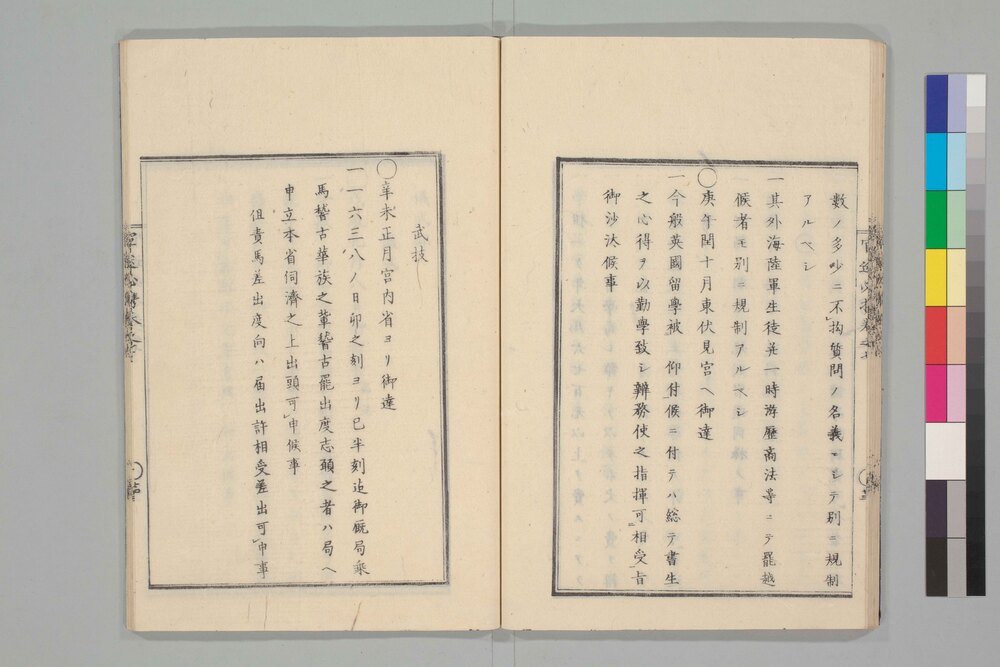 數ノ多少ニ不拘質問ノ名義ニシテ別ニ規制
アルヘシ
一其外海陸軍生徒并一時游歴商法等ニテ罷越
候者モ別ニ規制アルヘシ
〇庚午閏十月東伏見宮ヘ御達
一今般英國留學被　仰付候ニ付テハ総テ書生
之心得ヲ以勤學致シ辨務使之指揮可相受旨
御沙汰候事
武技
〇辛未正月宮内省ヨリ御達
一一六三八ノ日卯之刻ヨリ巳半刻迄御厩局乘
馬稽古華族之輩稽古罷出度志願之者ハ局ヘ
申立本省伺濟之上出頭可申候事
但貴馬差出度向ハ届出許相受差出可申事